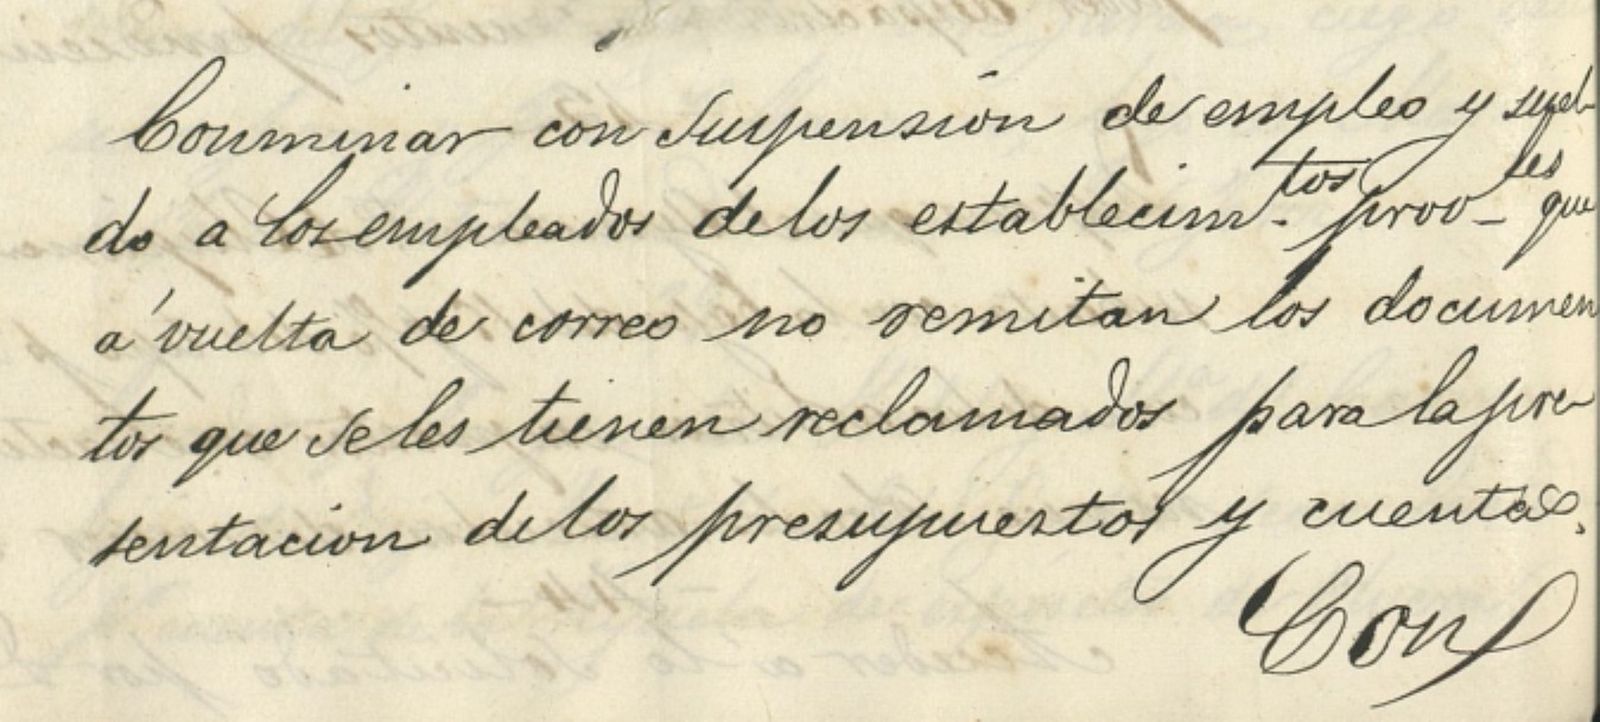 Conminar con suspensión de empleo y suel-
do a los empleados de los establecim.tos prov-les que
á vuelta de correo no remitan los documen
tos que se les tienen reclamados para la pre-
sentacion de los presupuestos y cuentas.